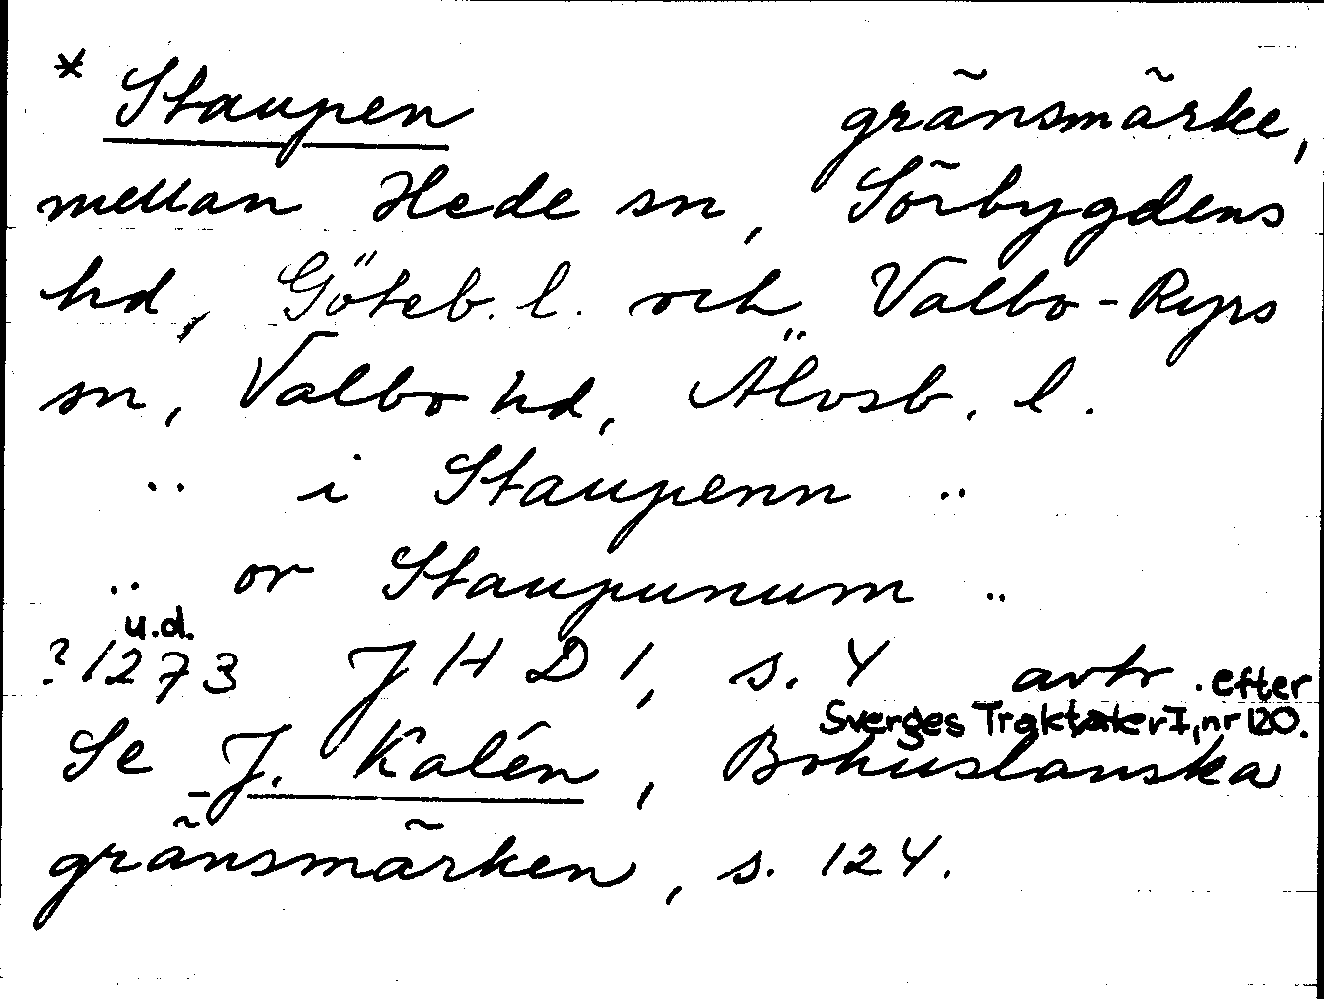 * Staupen gränsmärke,
mellan Hede sn, Sörbygdens
hd, Göteb. l. och Valbo-Ryrs
sn, Valbo hd, Älvsb. l.
.. i Staupenn ..
.. or Staupunum ..
u.d.
?1273 JHD 1, s. 4 avtr. efter
Sverges Traktater I, nr 120.
Se J. Kalén, Bohuslänska
gränsmärken, s. 124.